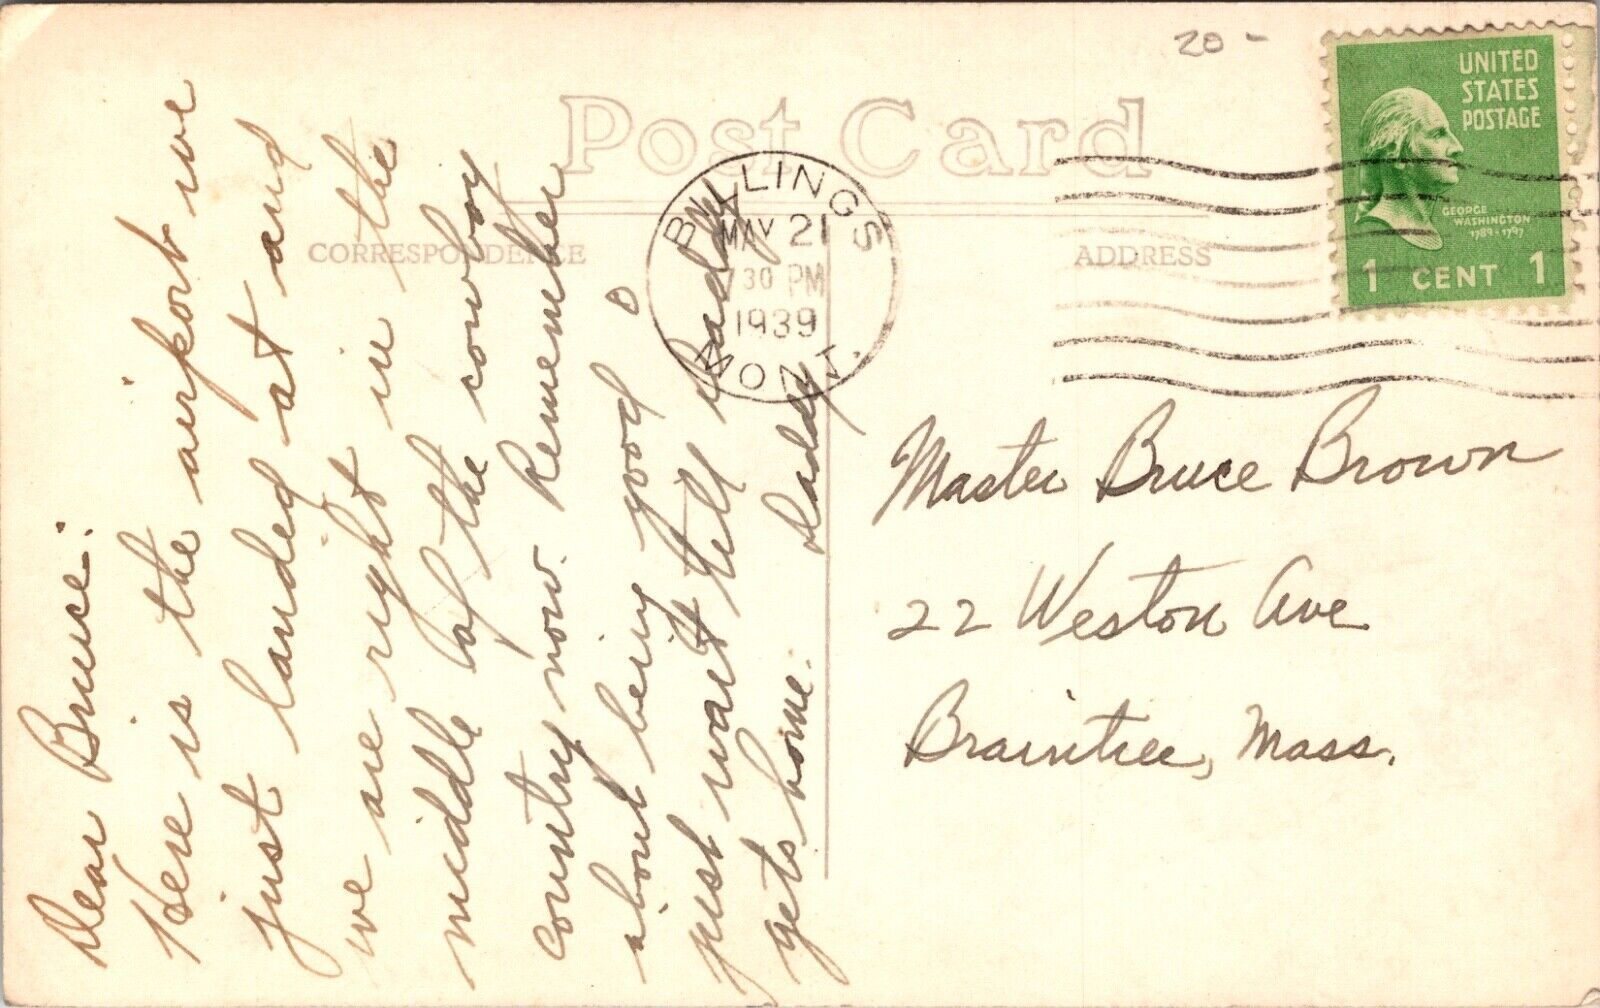 20 -
Post Card
CORRESPONDENCE
ADDRESS
BILLINGS
MAY 21
7 30 PM
1939
MONT.
UNITED
STATES
POSTAGE
GEORGE
WASHINGTON
1789-1797
1 CENT 1
Dear Bruce:
Here is the airport we
just landed at and
we are right in the
middle of the cowboy
country now. Remember
about being good
just wait till Daddy
gets home. Daddy
Master Bruce Brown
22 Weston Ave
Braintree, Mass.